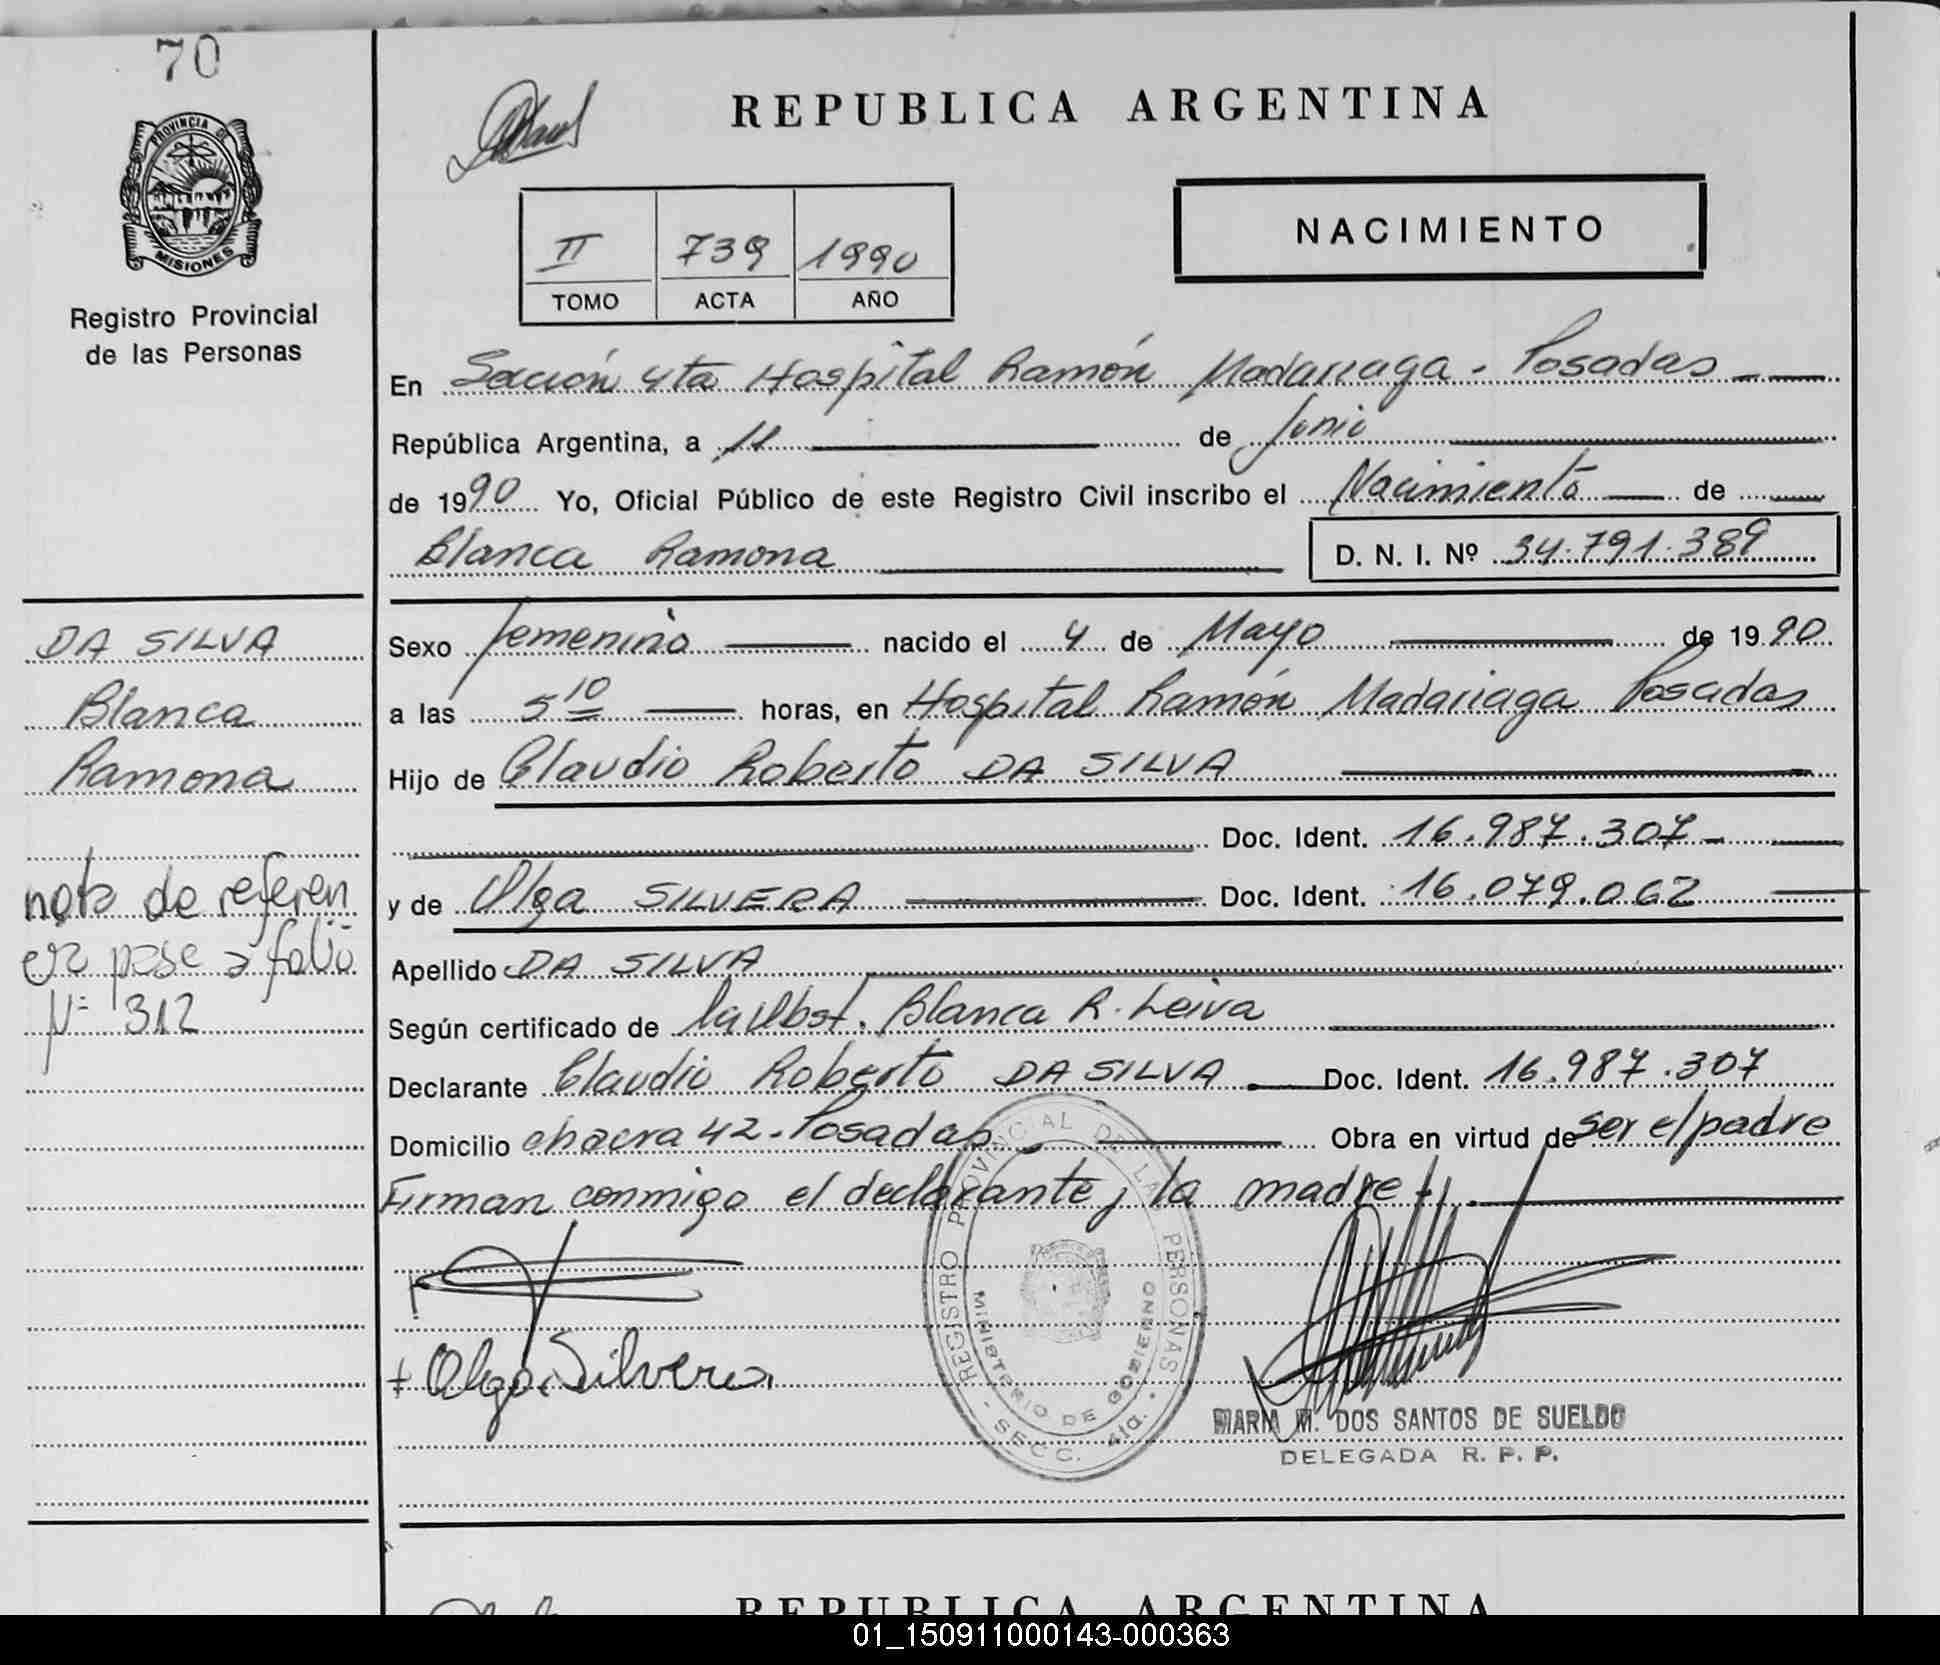 70
PROVINCIA DE
MISIONES
Registro Provincial
de las Personas
REPUBLICA ARGENTINA
II 739 1990
TOMO ACTA AÑO
NACIMIENTO
En Sección 4ta Hospital Ramón Madariaga - Posadas
República Argentina, a 11 de Junio
de 1990 Yo, Oficial Público de este Registro Civil inscribo el Nacimiento de
Blanca Ramona D. N. I. Nº 34.791.389
DA SILVA
Blanca
Ramona
nota de referen
cia pase a folio
Nº 312
Sexo femenino nacido el 4 de Mayo de 1990
a las 5 10 horas, en Hospital Ramón Madariaga Posadas
Hijo de Claudio Roberto DA SILVA
Doc. Ident. 16.987.307
y de Olga SILVERA Doc. Ident. 16.079.062
Apellido DA SILVA
Según certificado de la Obst. Blanca R. Leiva
Declarante Claudio Roberto DA SILVA Doc. Ident. 16.987.307
Domicilio chacra 42 - Posadas Obra en virtud de ser el padre
Firman conmigo el declarante y la madre
REGISTRO PROVINCIAL DE LAS PERSONAS
MINISTERIO DE GOBIERNO
SECC. 4ta.
Olga Silvera
MARIA M. DOS SANTOS DE SUELDO
DELEGADA R. P. P.
REPUBLICA ARGENTINA
01_150911000143-000363